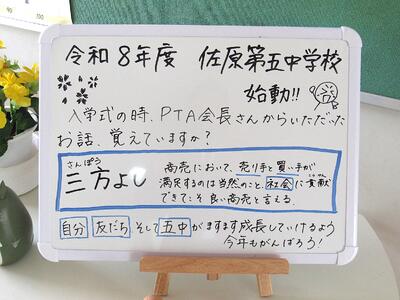 令和8年度 佐原第五中学校
始動!!
入学式の時、PTA会長さんからいただいた
お話、覚えていますか?
さんぽう
三方よし
商売において、売り手と買い手が
満足するのは当然のこと、社会に貢献
できてこそ良い商売と言える。
自分 友だち そして 五中 がますます成長していけるよう
今年もがんばろう!